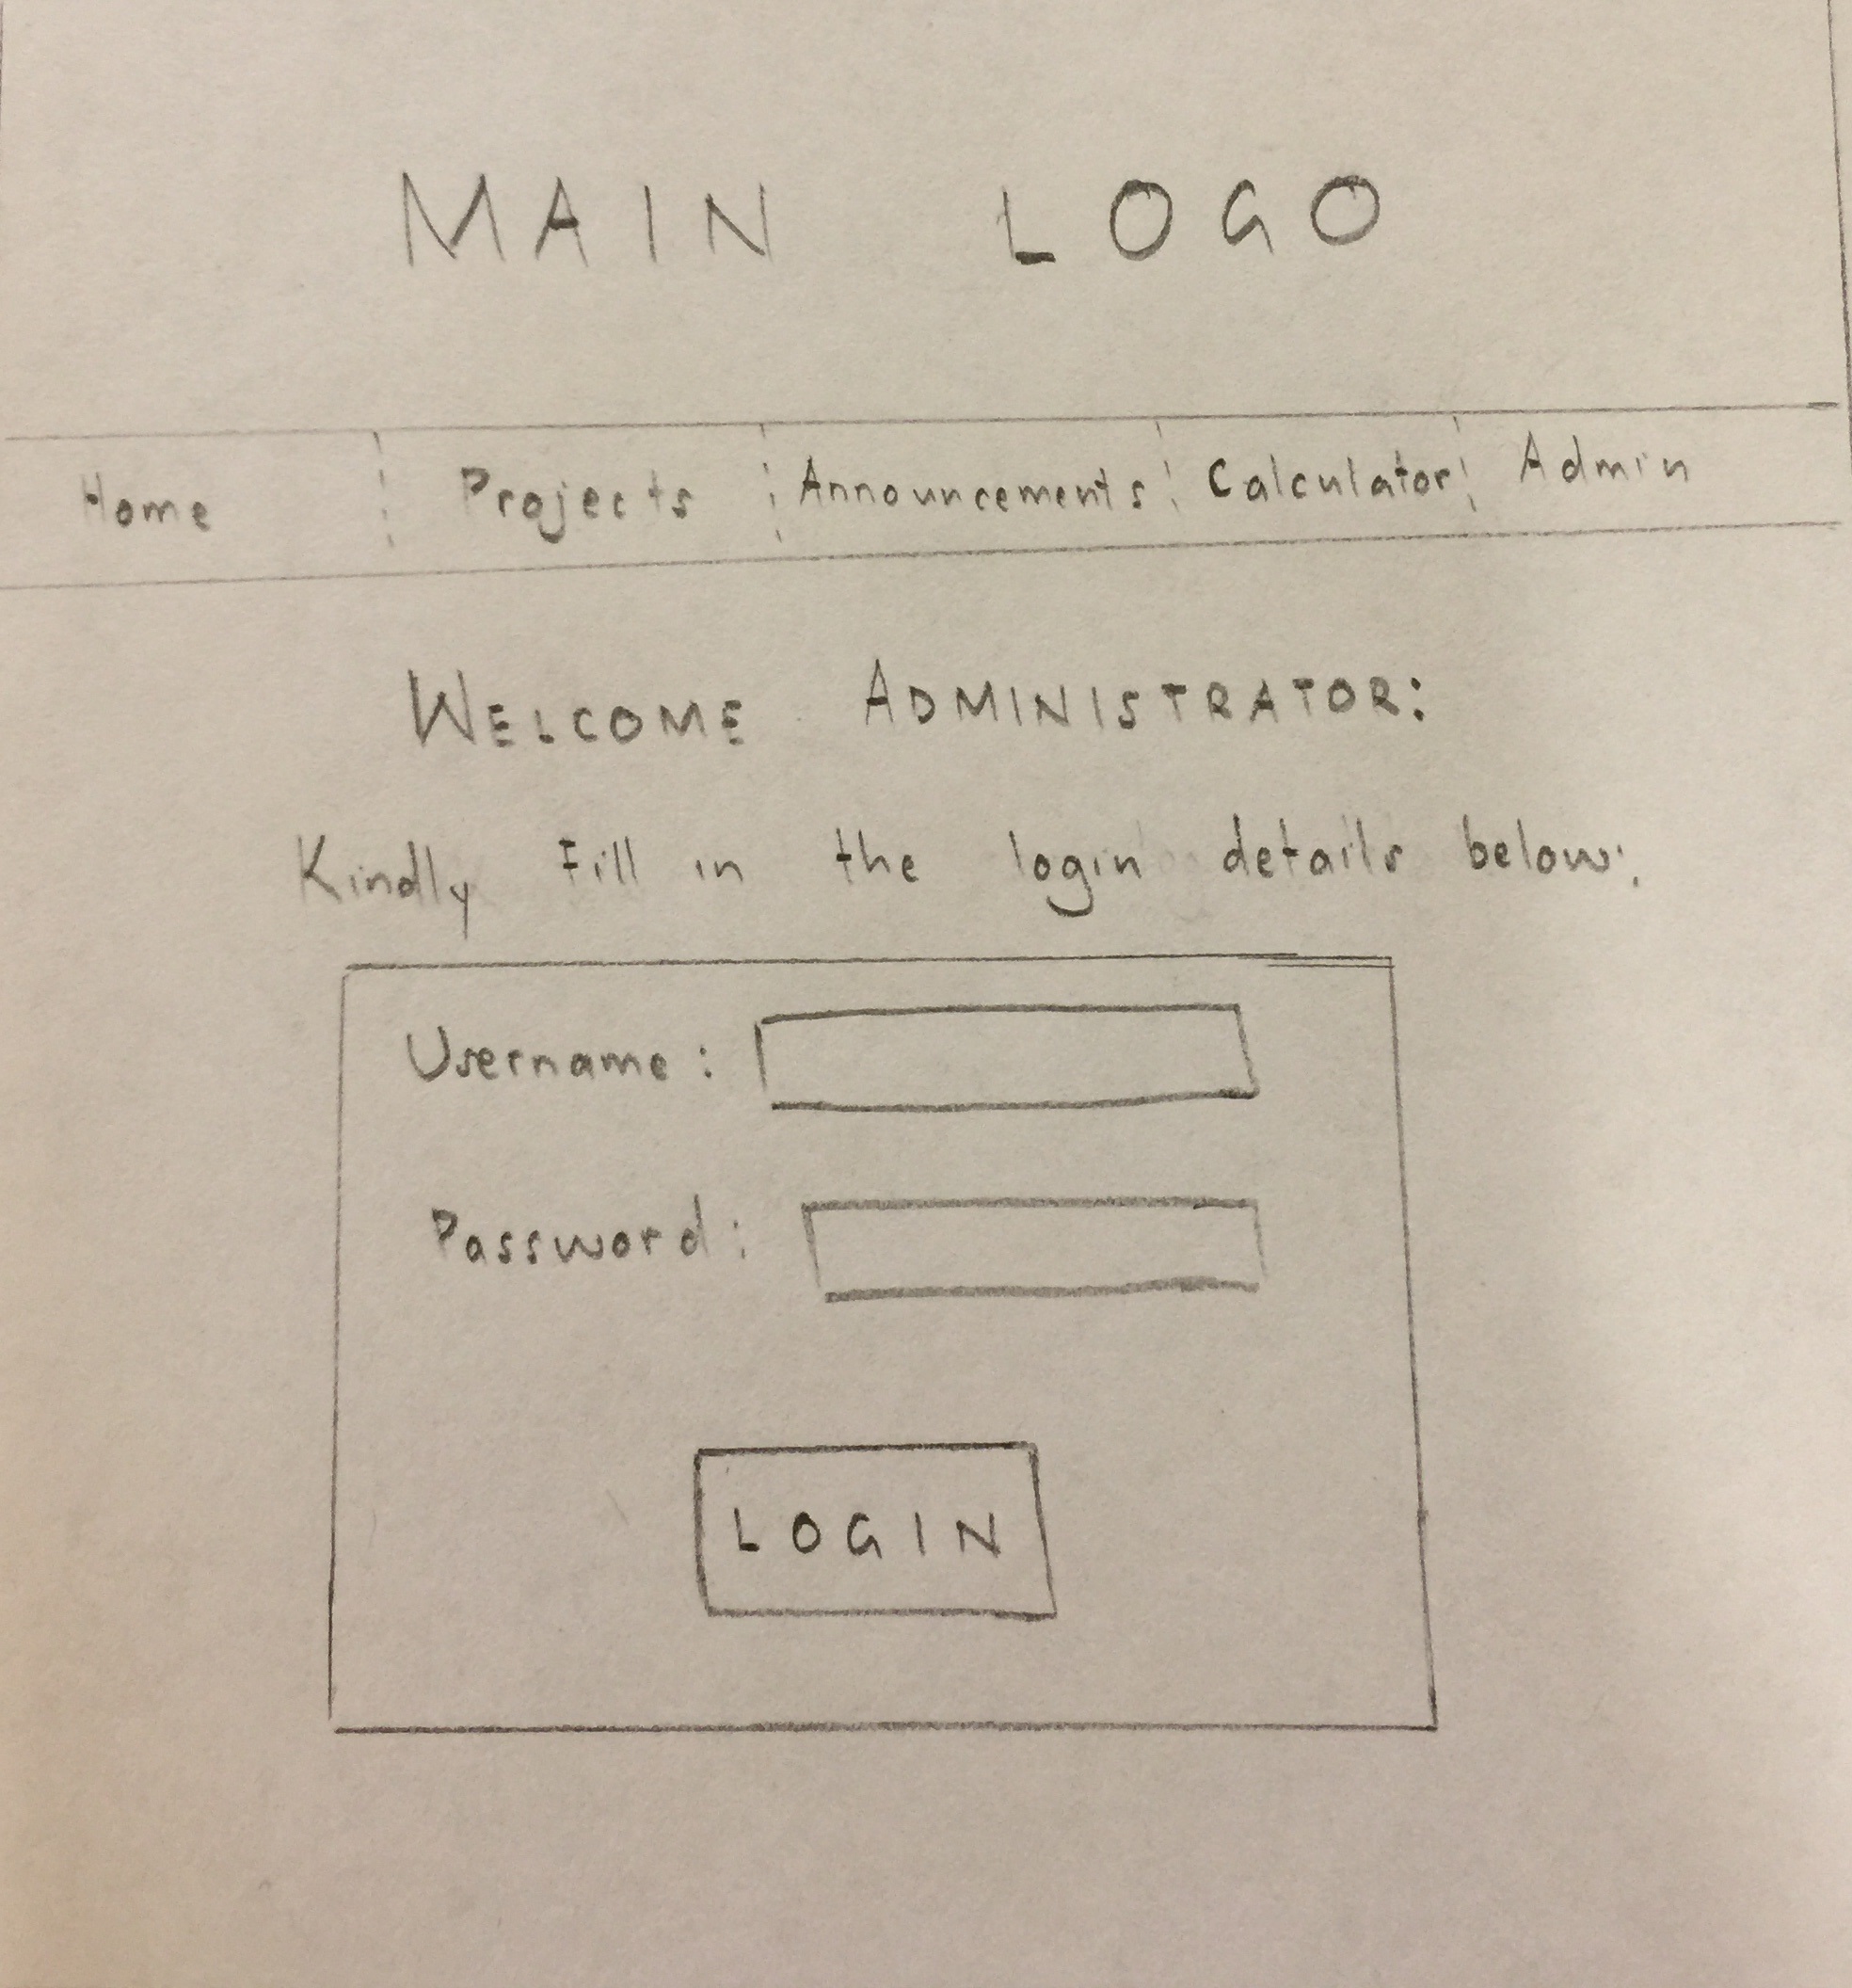 MAIN LOGO
Home Projects Announcements Calculator Admin
WELCOME ADMINISTRATOR:
Kindly Fill in the login details below:
Username:
Password:
LOGIN